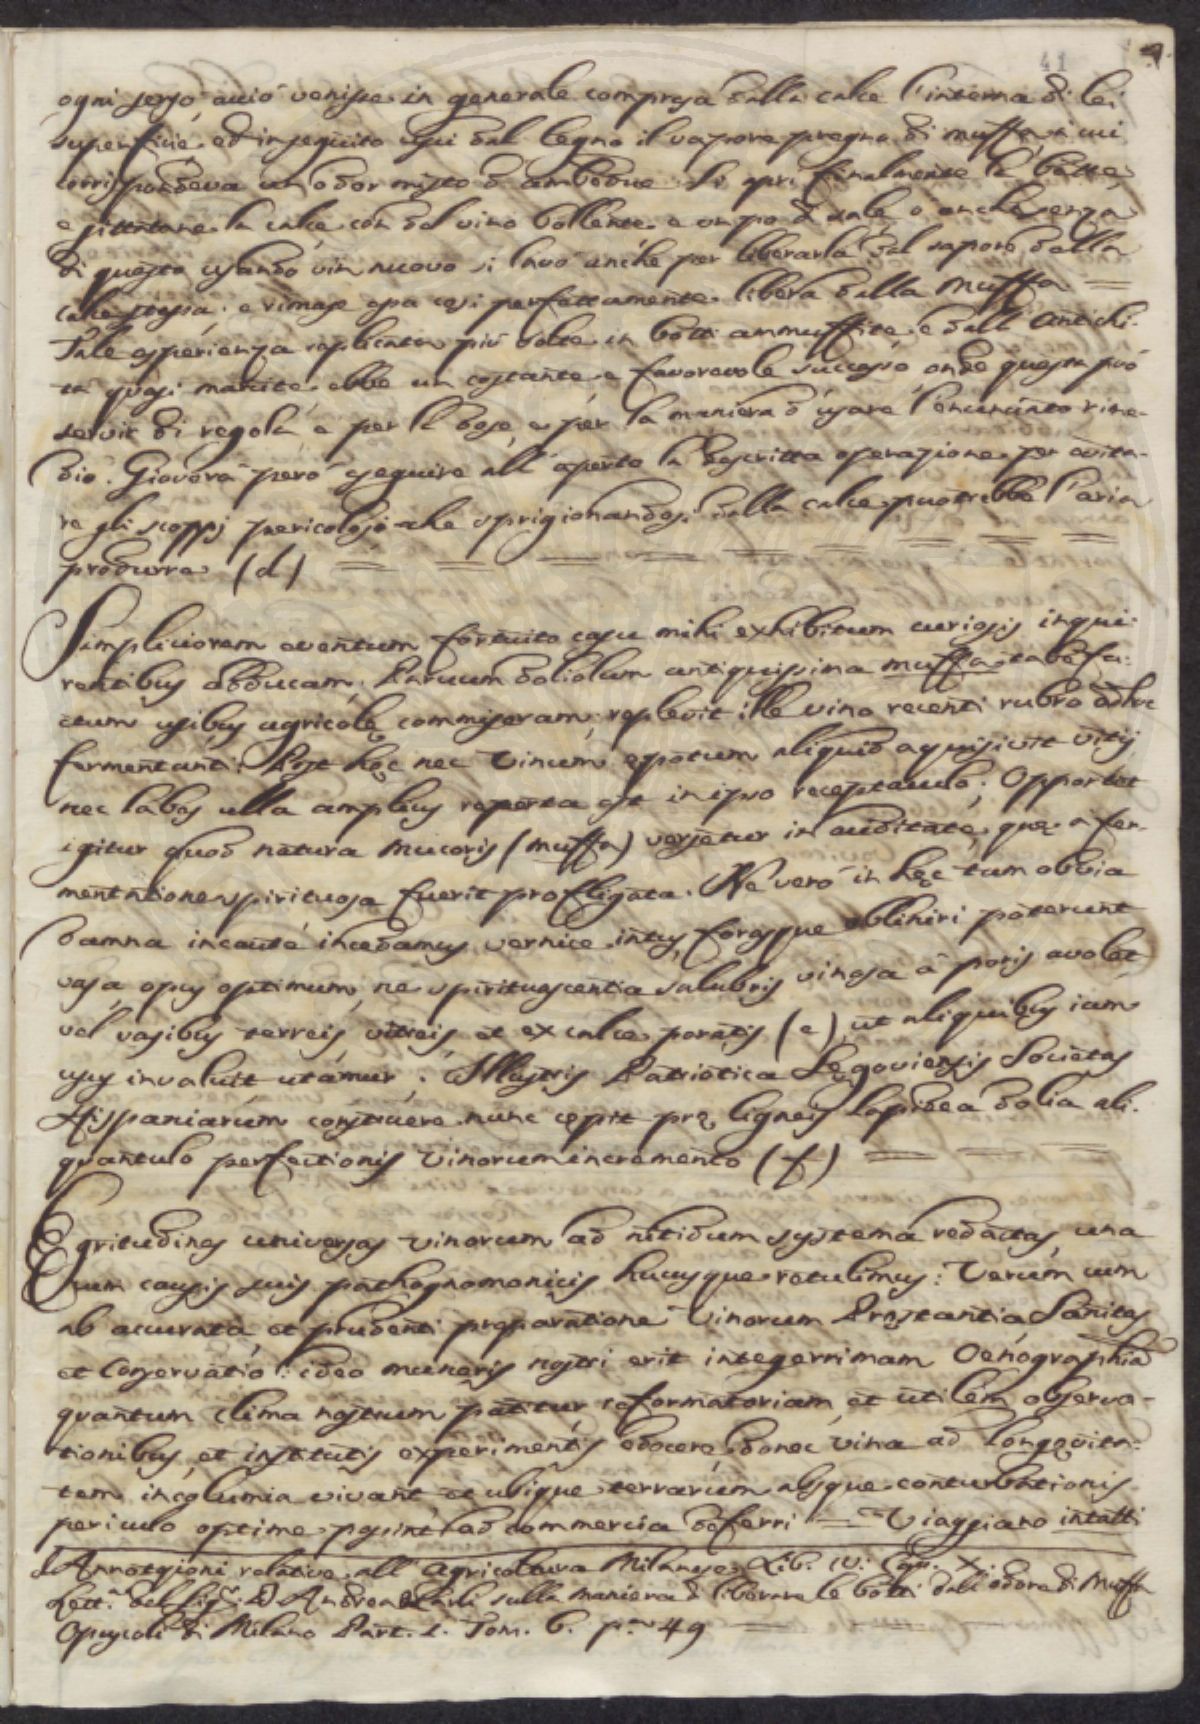 41 4.
ogni senso acciò venisse in generale compresa dalla calce l'interna di lei
superficie, ed in seguito uscì dal legno il vapore pregno di muffa, a cui
corrispondeva un odor misto d'ambedue. Si aprì finalmente la botte,
e gittatane la calce con del vino bollente e un po' di sale, o anche senza
di questo usando vin nuovo si lavò anche per liberarla dal sapore della
calce stessa, e rimase essa così perfettamente libera dalla Muffa =
Tale esperienza replicata più volte in botti ammuffite e dall'Antichi-
tà quasi marcite ebbe un costante e favorevole successo onde questa può
servir di regola e per la dose, e per la maniera d'usare l'enunciato rime-
dio. Gioverà però eseguire all'aperto la descritta operazione per evita-
re gli scoppj pericolosi che sprigionandosi dalla calce puotrebbe l'aria
produrre (d) = = = = = = = = =
Simpliciorem eventum fortuito casu mihi exhibitum curiosis inqui-
rentibus adducam; Parvum doliolum antiquissima muffa tabefa-
ctum usibus agricolę commiseram; replevit ille vino recenti rubro adhuc
fermentanti: Post hęc nec Vinum epotum aliquid aquisivit vitij
nec labes ulla amplius reperta est in ipso receptaculo; Opportet
igitur quod natura Mucoris (muffa) versetur in aciditate, quę a fer-
mentatione spirituosa fuerit profligata. Ne vero in hęc tum obvia
damna incaute incedamus, vernice intus, forasque obliniri poterunt
vasa opus optimum, ne spirituascentia salubris vinosa a poris avolet,
vel vasibus terreis, vitreis, et ex calce paratis (e) ut aliquibus iam
usus invaluit utamur. Illustris Patriotica Segoviensis Societas
Hispaniarum construere nunc cępit prę ligneis lapidea dolia ali-
quantulo perfectionis Vinorum incremento (f) = = = =
Ęgritudines universas vinorum ad nitidum systema redactas, una
cum causis suis pathognomonicis hucusque retulimus: Verum cum
ab accurata, et prudenti pręparatione Vinorum Pręstantia, Sanitas
et Conservatio: ideo muneris nostri erit integerrimam Oenographiã
quantum clima nostrum patitur reformatoriam, et utilem observa-
tionibus, et institutis experimentis edocere, donec vina ad longęvita-
tem incolumia vivant, et ubique terrarum absque conturbationis
periculo optime possint ad commercia deferri = Viaggiano intatti
d Annotazioni relative all'Agricoltura Milanese Lib. IV. Cap. X.
Lett.ª del Sig.r D. Andrea Carli sulla maniera d liberare le botti dall'odore di Muffa
Opuscoli di Milano Part. 1. Tom. 6. p.ª 49